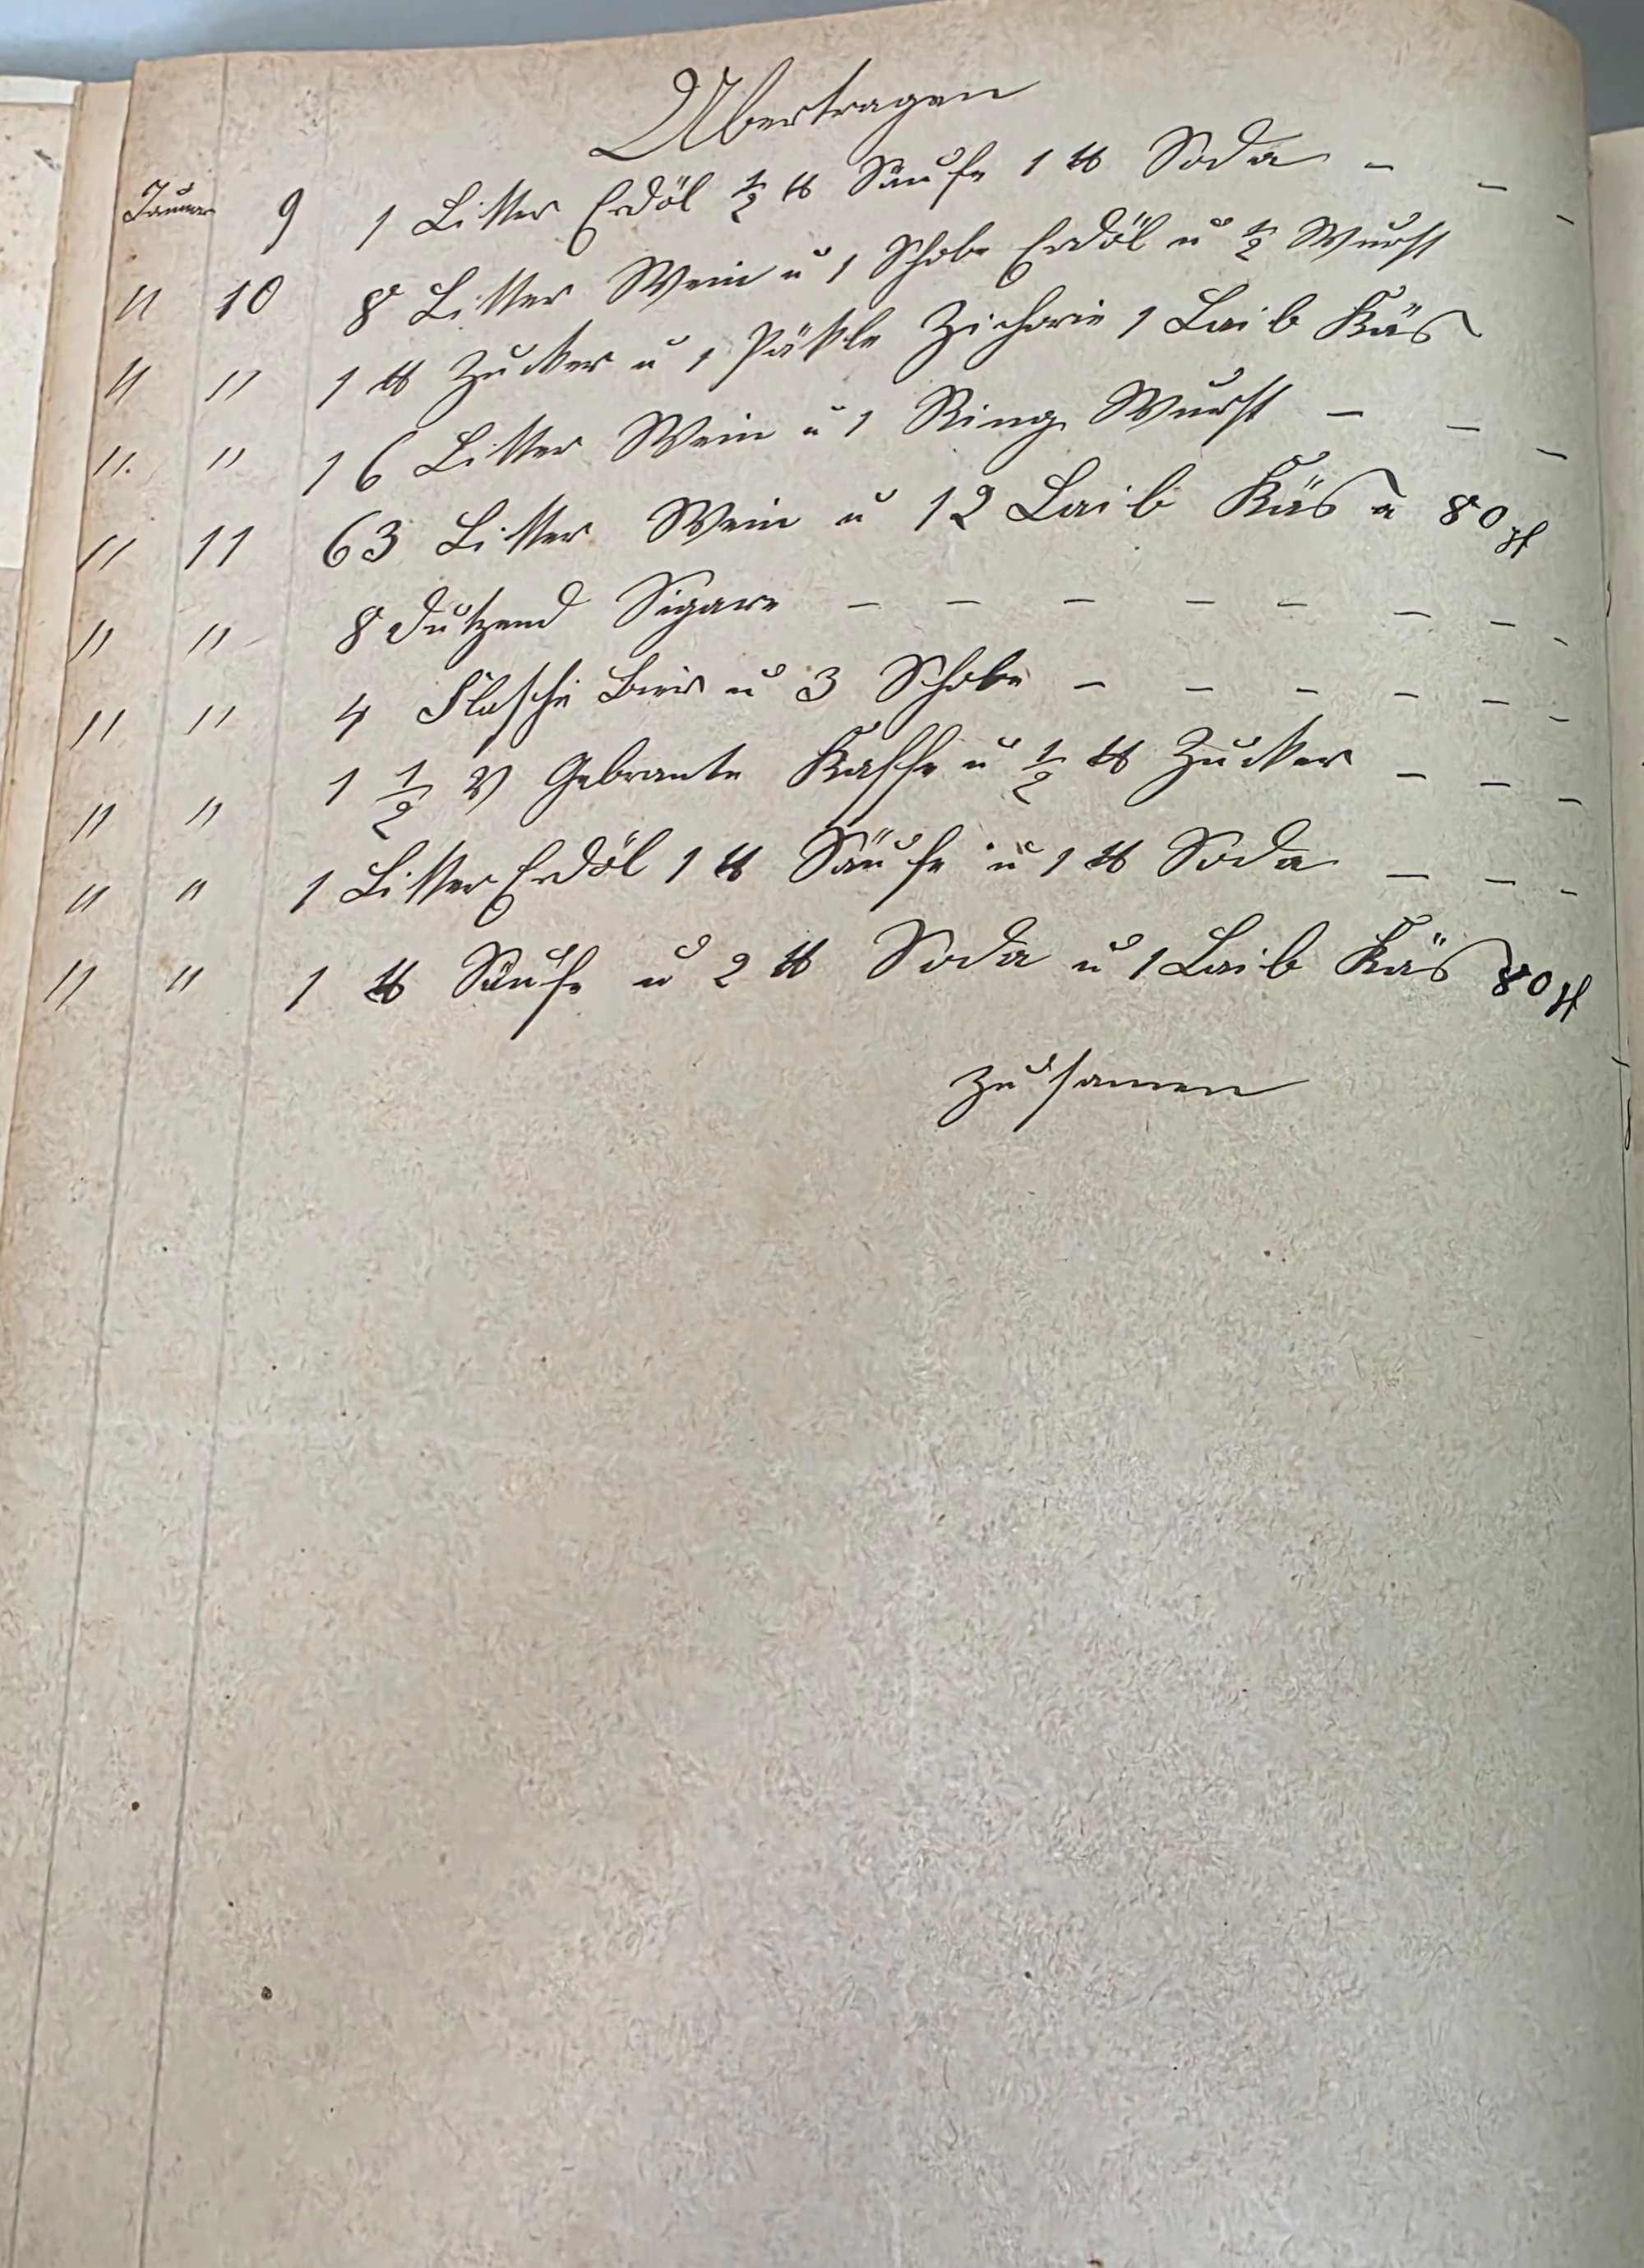 Übertragen
Januar 9 1 Litter Erdöl ½ ℔ Säufe 1 ℔ Soda - - -
" 10 8 Litter Wein u 1 Schobe Erdöl u ½ Wurst
" " 1 ℔ Zucker u 1 Päkle Zichorie 1 Laib Käs
" " 16 Litter Wein u 1 Ring Wurst - - -
" 11 63 Litter Wein u 12 Laib Käs a 80 pf
" " 8 dutzend Sigare - - - - - - - -
" " 4 Flasche Bier u 3 Schobe - - - - - -
" " 1 ½ ℔ Gebrante Kaffe u ½ ℔ Zucker - - -
" " 1 Litter Erdöl 1 ℔ Säufe u 1 ℔ Soda - - -
" " 1 ℔ Säufe u 2 ℔ Soda u 1 Laib Käs 80 pf
zusamen